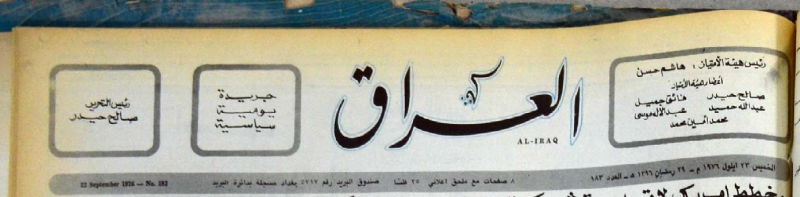 رئيس هيئة الأمتياز : هاشم حسن
أعضاء هيئة الأمتياز
صالح حيدر فائق جميل
عبدالله حميد عبدالاله موسى
محمد أمين محمد
العراق
AL-IRAQ
جريدة
يومية
سياسية
رئيس التحرير
صالح حيدر
الخميس ٢٣ ايلول ١٩٧٦ م - ٢٩ رمضان ١٣٩٦ هـ - العدد ١٨٣
٨ صفحات مع ملحق اعلاني ٢٥ فلسا صندوق البريد رقم ٥٧١٧ بغداد مسجلة بدائرة البريد
September 1976 — No.